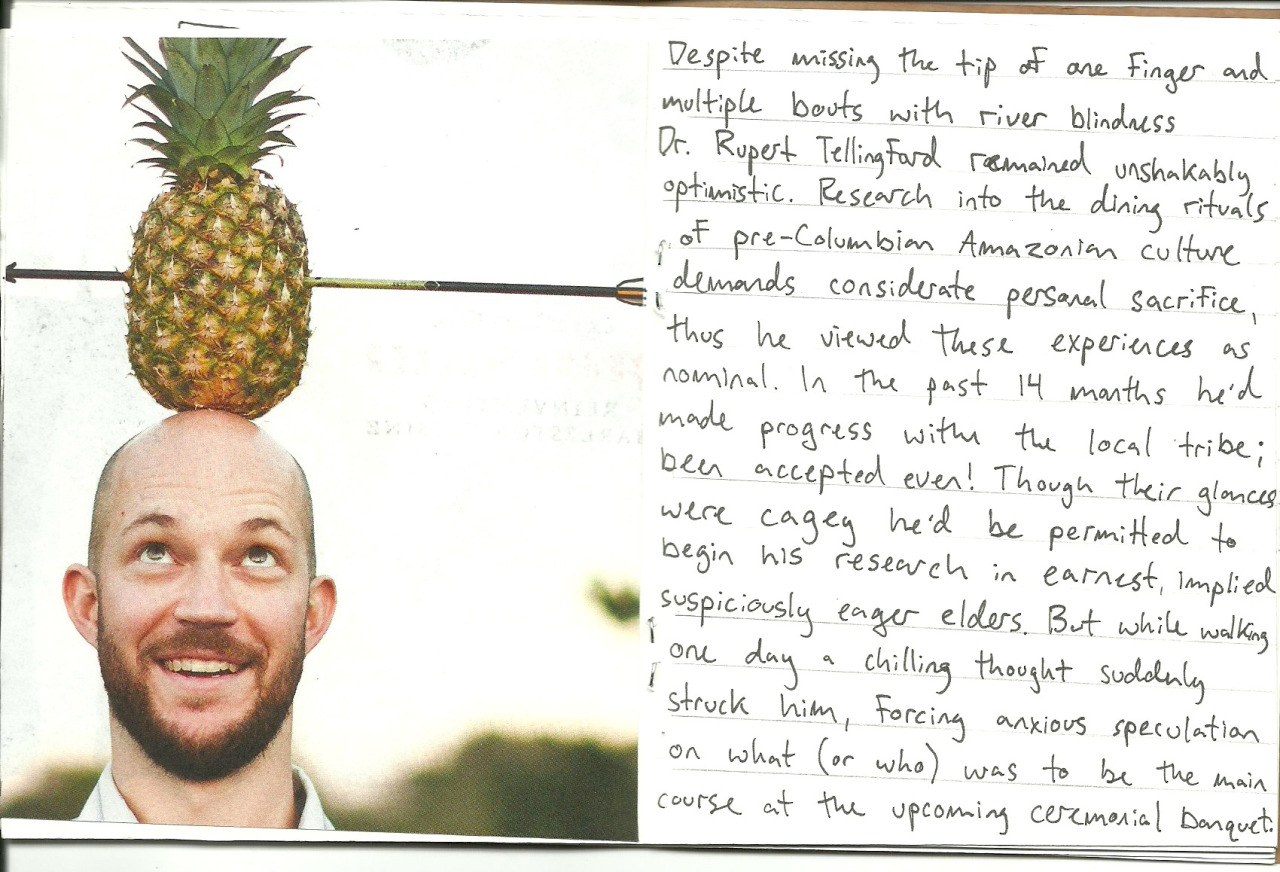 Despite missing the tip of one finger and
multiple bouts with river blindness
Dr. Rupert Tellingford remained unshakably
optimistic. Research into the dining rituals
of pre-Columbian Amazonian culture
demands considerate personal sacrifice,
thus he viewed these experiences as
nominal. In the past 14 months he'd
made progress with the local tribe;
been accepted even! Though their glances
were cagey he'd be permitted to
begin his research in earnest, implied
suspiciously eager elders. But while walking
one day a chilling thought suddenly
struck him, forcing anxious speculation
on what (or who) was to be the main
course at the upcoming ceremonial banquet.